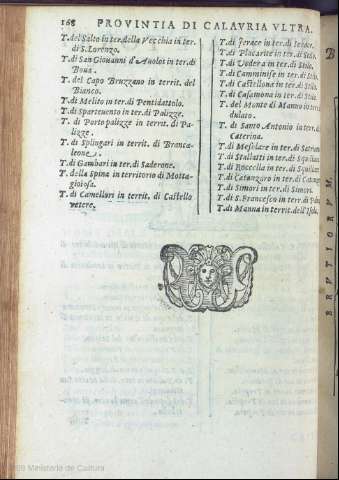 168 PROVINTIA DI CALAVRIA VLTRA.
T. del Salto in ter. della Vecchia in ter.
di S. Lorenzo.
T. di San Giouanni d'Auolos in ter. di
Boua.
T. del Capo Bruzzano in territ. del
Bianco.
T. di Melito in ter. di Pentidattolo.
T. di Spartiuento in ter. di Palizze.
T. di Porto palizze in territ. di Pa-
lizze.
T. di Splingari in territ. di Branca-
leone.
T. di Gambari in ter. di Saderone.
T. della Spina in territorio di Motta-
gioiosa.
T. di Camellari in territ. di Castello
vetere.
T. di Ierace in ter. di Ierace.
T. di Placarite in ter. di Stilo.
T. di Vodera in ter. di Stilo.
T. di Camminise in ter. di Stilo.
T. di Castellona in ter. di Stilo.
T. di Casamona in ter. di Stilo.
T. del Monte di Manno in ter.
dulato.
T. di Santo Antonio in ter.
Caterina.
T. di Melolare in ter. di Satriano
T. di Stallatti in ter. di Squillace
T. di Roccella in ter. di Squillace
T. di Catanzaro in ter. di Catanz
T. di Simori in ter. di Simeri.
T. di S. Francesco in ter. di
T. di Manna in territ. dell'Isola.
BRVTIORVM,
Ministerio de Cultura